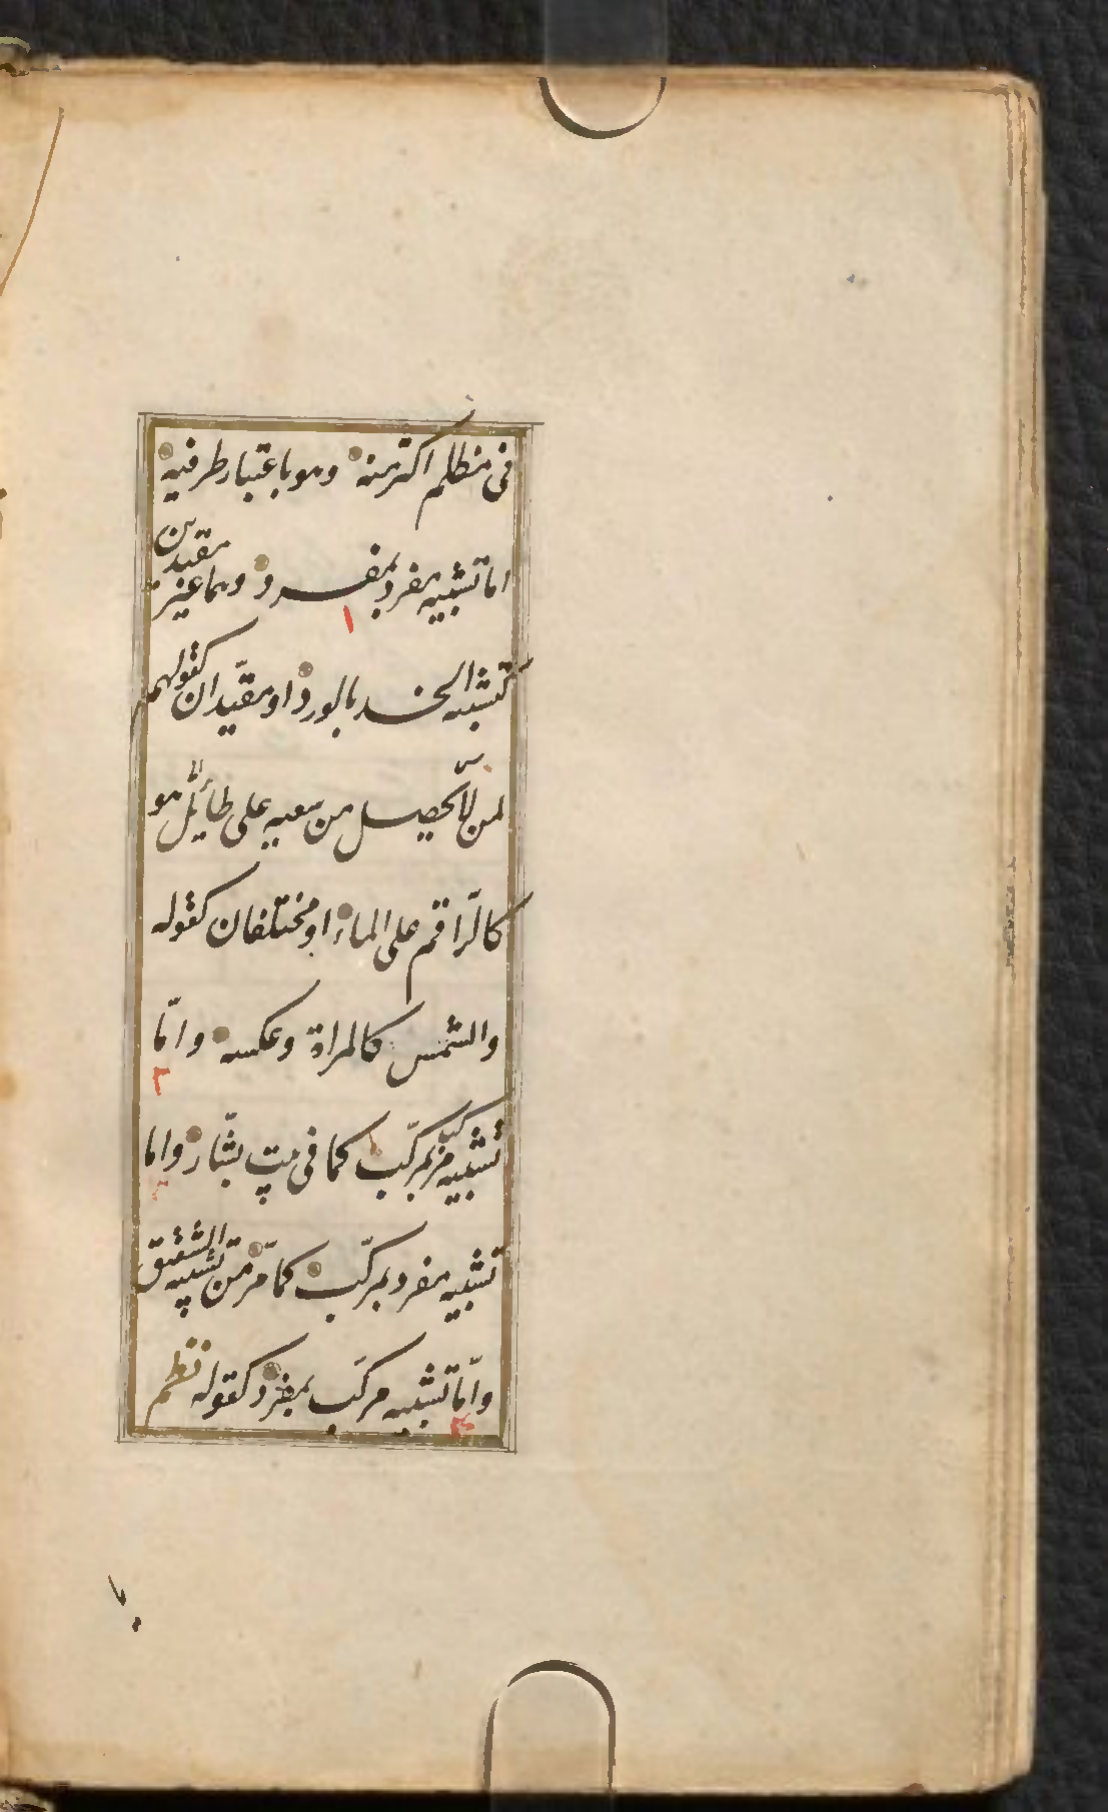 فى مظلم اكثر منه وهو باعتبار طرفيه
اما تشبيه مفرد بمفرد وهما غير مقيدين
١
كتشبيه الخد بالورد او مقيّدان كقولهم
لمن لا يحصل من سعيه على طائل هو
كالرّاقم على الماء او مختلفان كقوله
والشمس كالمراة وعكسه وامّا
٢
تشبيه مركب بمركّب كما فى بيت بشّار واما
٣
تشبيه مفرد بمركّب كما مرّ من تشبيه الشقيق
وامّا تشبيه مركّب بمفرد كقوله نظم
٤